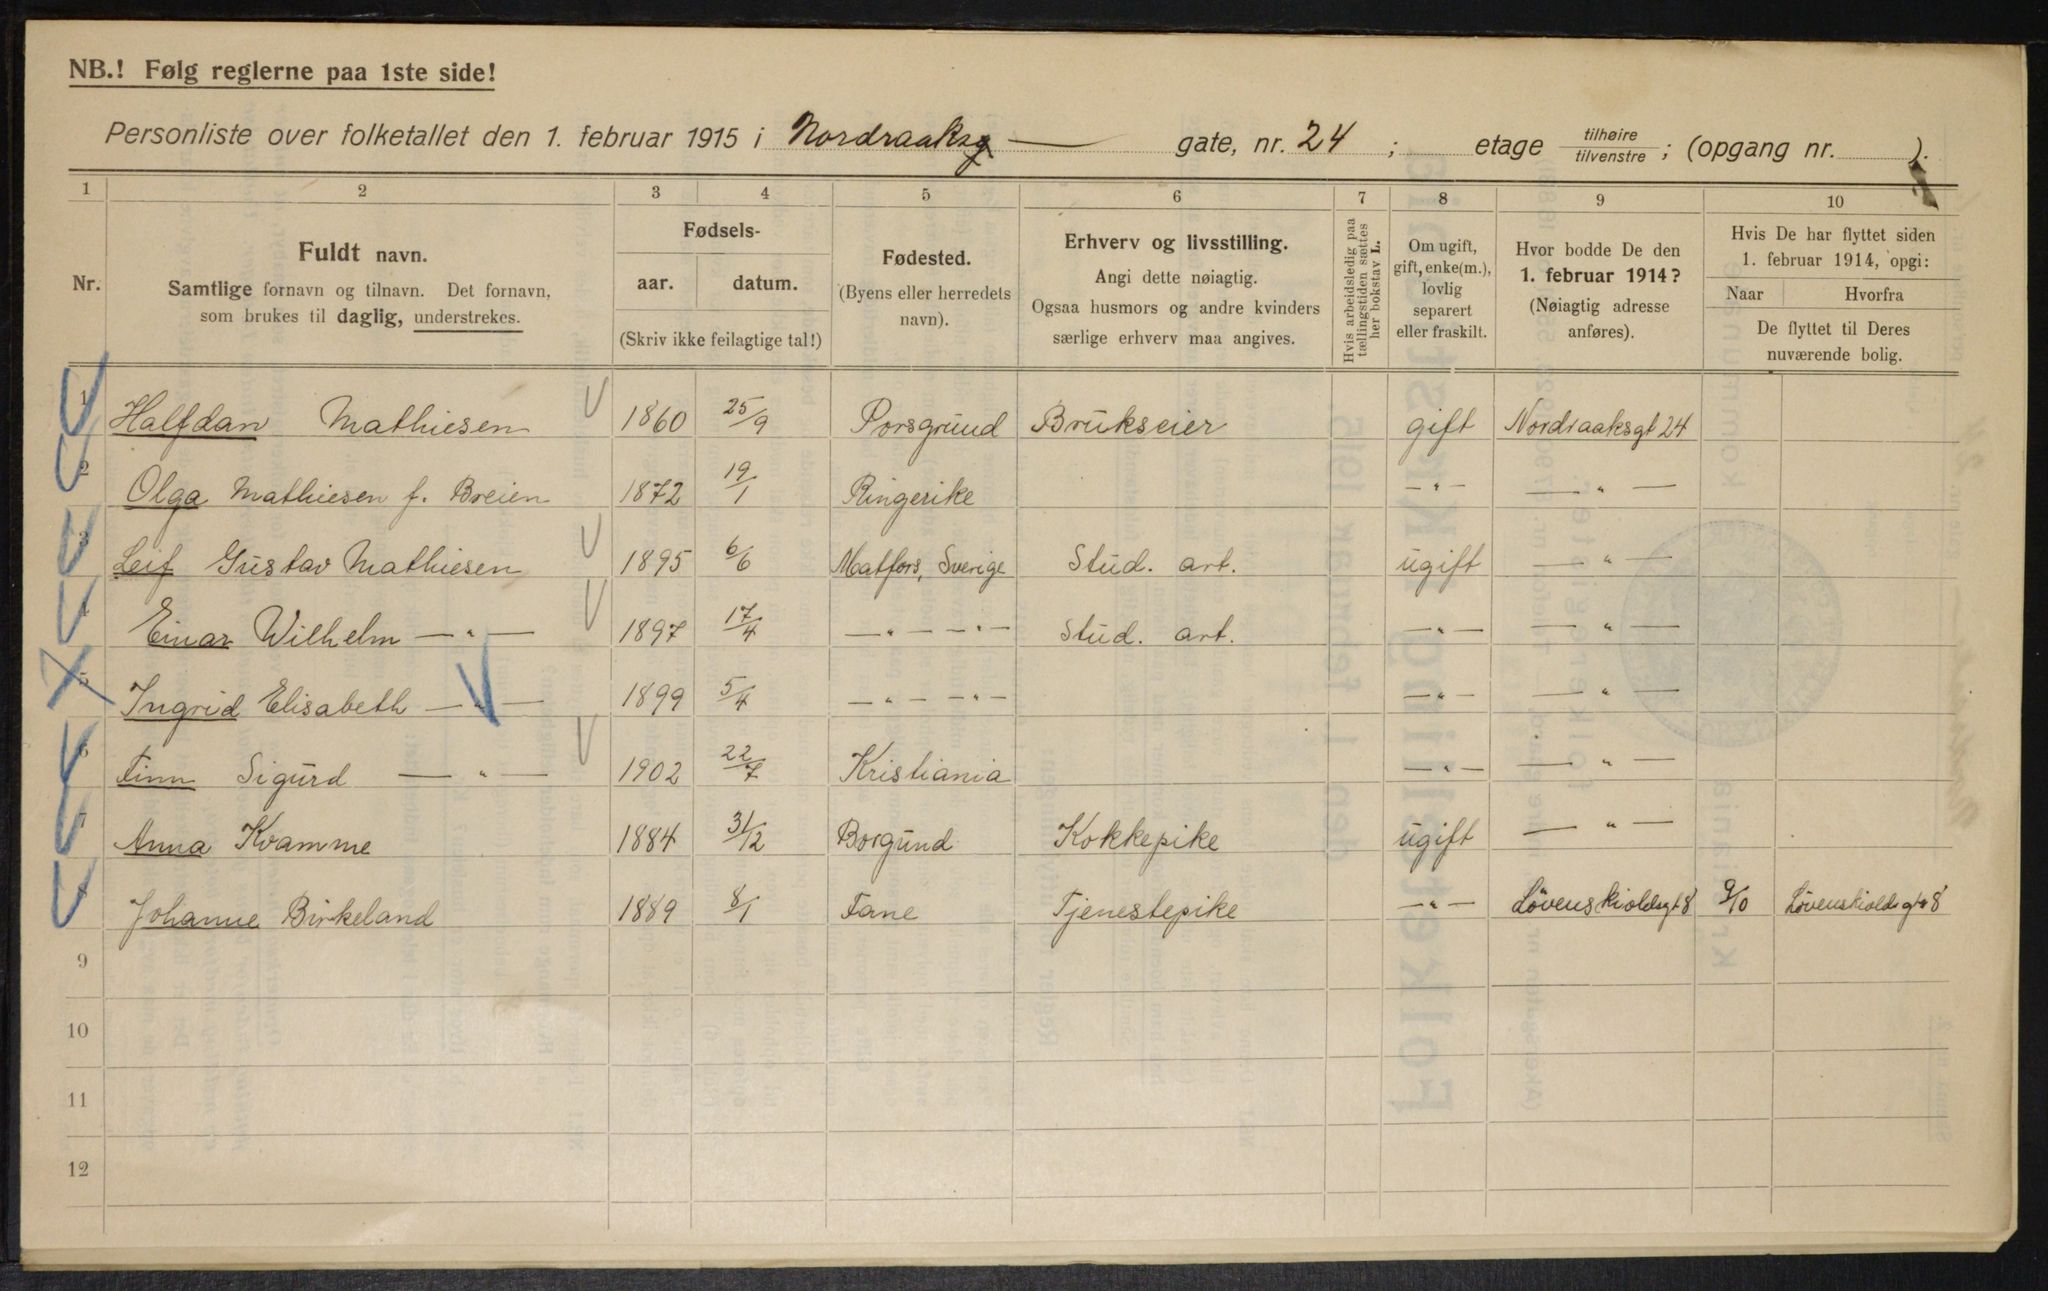 NB.! Følg reglerne paa 1ste side!
Personliste over folketallet den 1. februar 1915 i Nordraaksg gate, nr. 24 ; etage tilhøire tilvenstre ; (opgang nr. ).
1 2 3 4 5 6 7 8 9 10
Nr.
Fuldt navn.
Samtlige fornavn og tilnavn. Det fornavn,
som brukes til daglig, understrekes.
Fødsels-
aar. datum.
(Skriv ikke feilagtige tal!)
Fødested.
(Byens eller herredets
navn).
Erhverv og livsstilling.
Angi dette nøiagtig.
Ogsaa husmors og andre kvinders
særlige erhverv maa angives.
Hvis arbeidsledig paa
tællingstiden sættes
her bokstav L.
Om ugift,
gift, enke(m.),
lovlig
separert
eller fraskilt.
Hvor bodde De den
1. februar 1914?
(Nøiagtig adresse
anføres).
Hvis De har flyttet siden
1. februar 1914, opgi:
Naar Hvorfra
De flyttet til Deres
nuværende bolig.
1 Halfdan Mathiesen 1860 25/9 Porsgrund Brukseier gift Nordraaksgt 24
2 Olga Mathiesen f. Breien 1872 19/1 Ringerike —"— —"—
3 Leif Gustav Mathiesen 1895 6/6 Matfors, Sverige Stud. art. ugift —"—
4 Einar Wilhelm —"— 1897 17/4 —"— —"— Stud. art. —"— —"—
5 Ingrid Elisabeth —"— 1899 5/4 —"— —"— —"— —"—
6 Finn Sigurd —"— 1902 22/7 Kristiania —"— —"—
7 Anna Kvamme 1884 31/12 Borgund Kokkepike ugift —"—
8 Johanne Birkeland 1889 8/1 Fane Tjenestepike —"— Løvenskioldsgt 8 9/10 Løvenskioldsgt 8
9
10
11
12